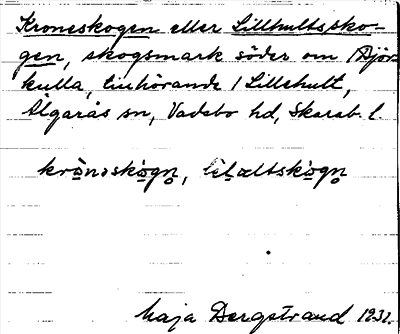 Kroneskogen eller Lillhultssko-
gen, skogsmark söder om Björ
kulla, tillhörande Lillehult,
Älgarås sn, Vadsbo hd, Skarab. l.
Maja Bergstrand 1932.